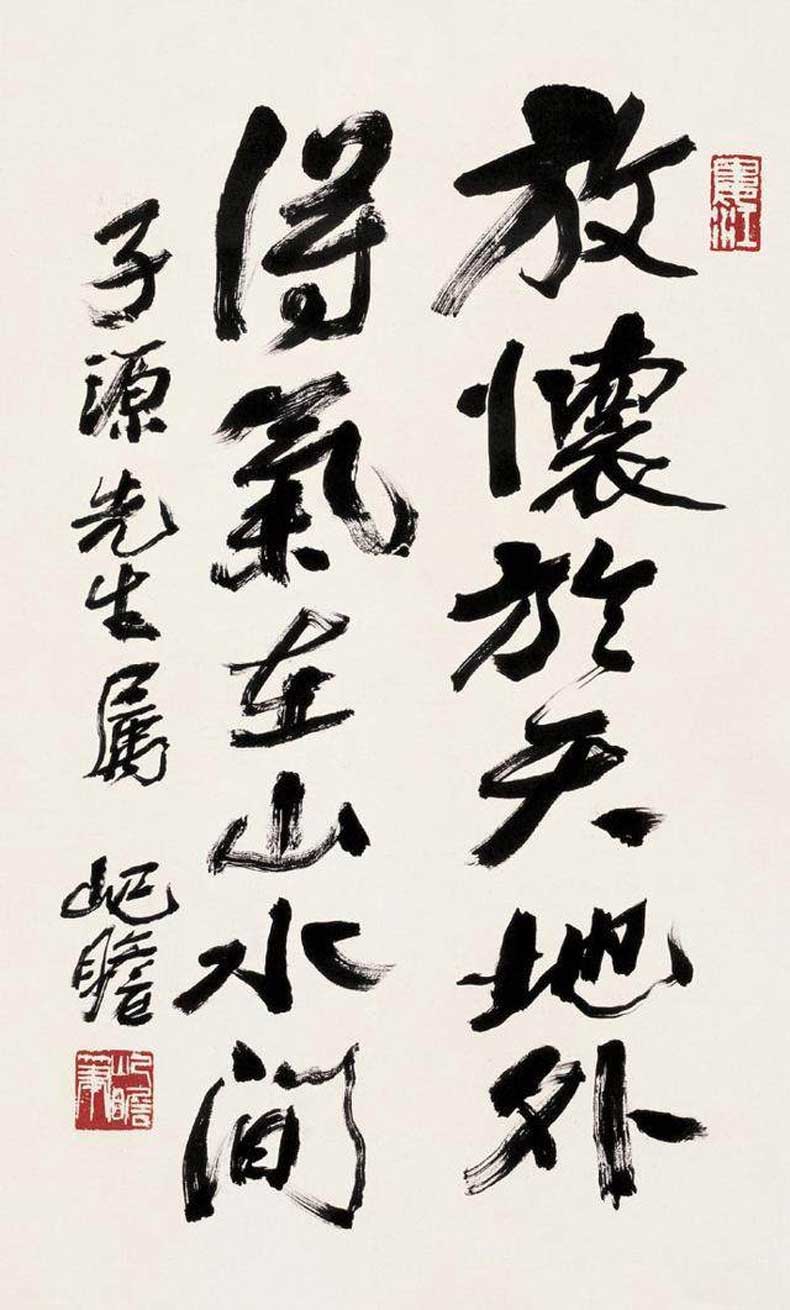 放懷於天地外
得氣在山水間
子源先生属 屺瞻